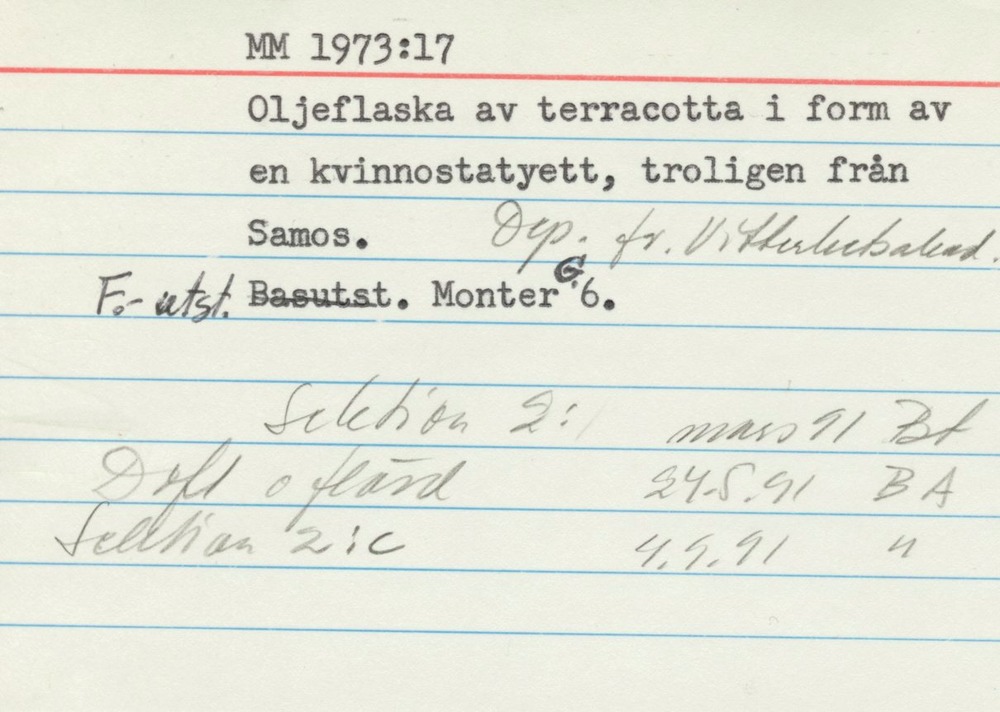 MM 1973:17
Oljeflaska av terracotta i form av
en kvinnostatyett, troligen från
Samos. Dep. fr. Vitterhetsakad.
F.- utst. Basutst. Monter G 6.
Sektion 2: mars 91 BA
Doft o flärd 24.5.91 BA
Sektion 2:c 4.9.91 "